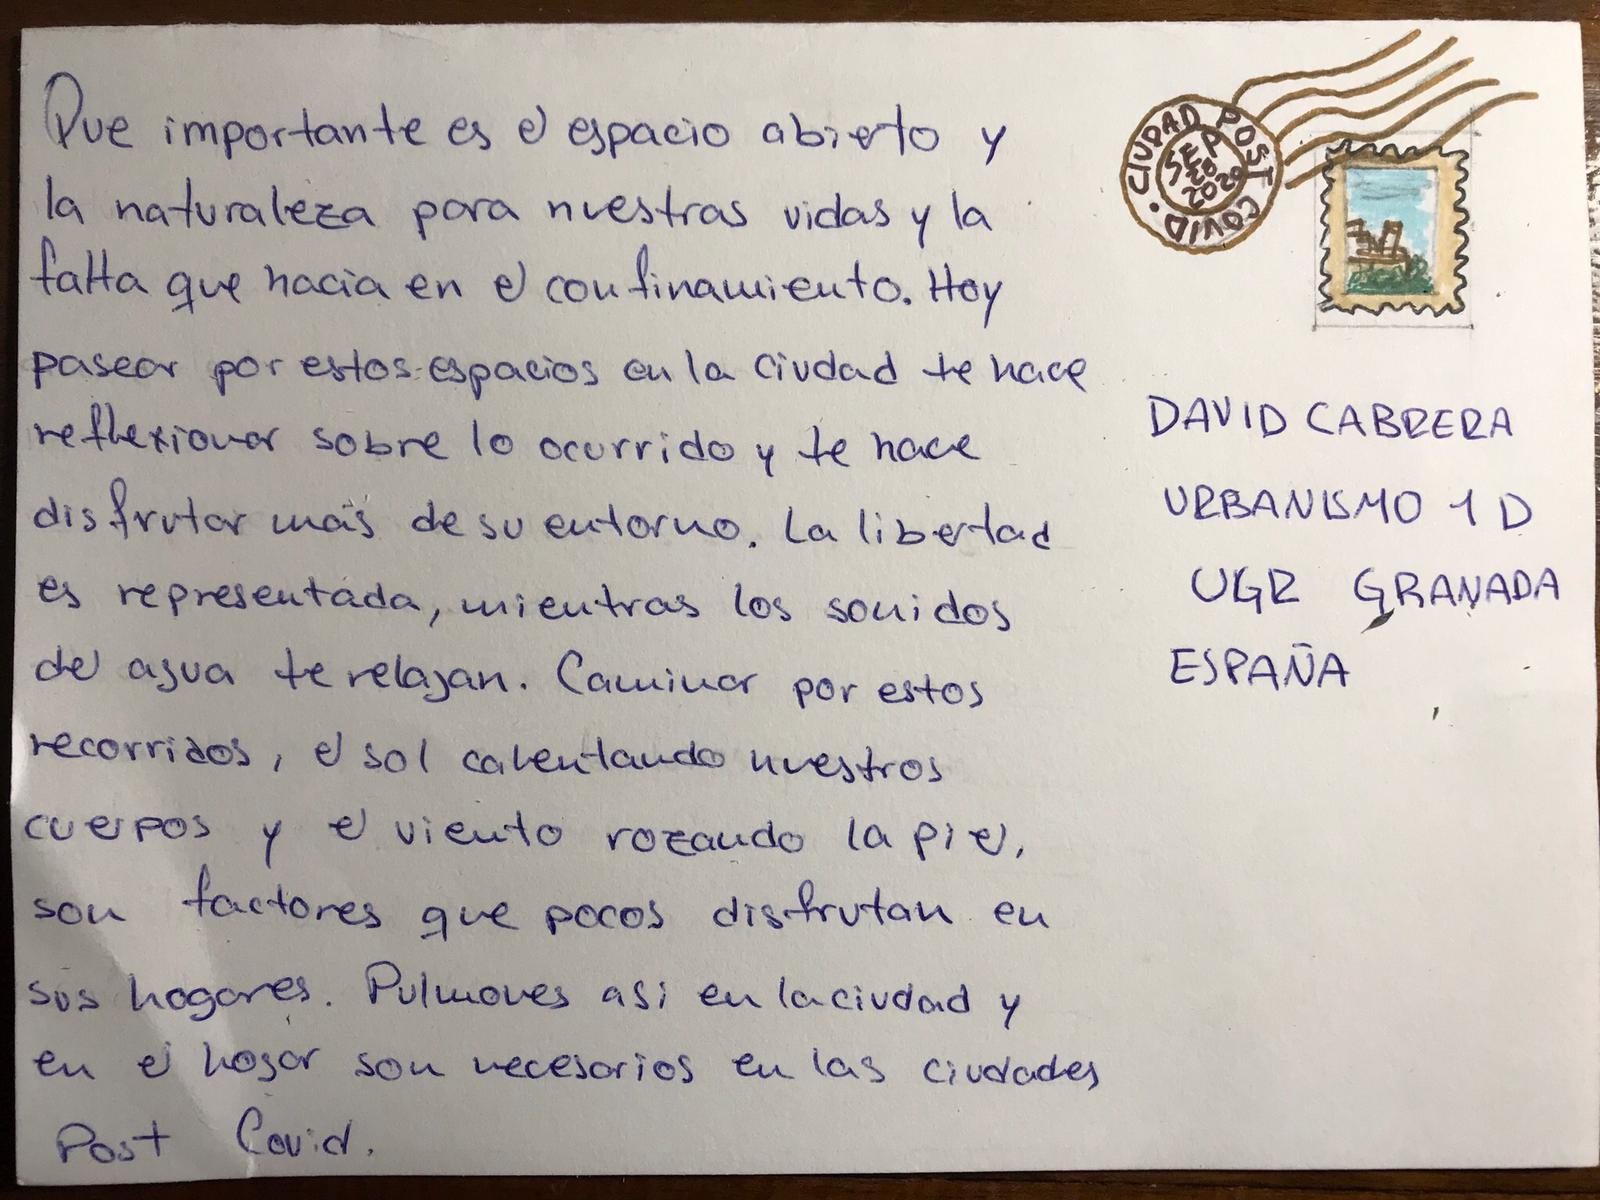 Que importante es el espacio abierto y
la naturaleza para nuestras vidas y la
falta que hacia en el confinamiento. Hoy
pasear por estos espacios en la ciudad te hace
reflexionar sobre lo ocurrido y te hace
disfrutar más de su entorno. La libertad
es representada, mientras los sonidos
del agua te relajan. Caminar por estos
recorridos, el sol calentando nuestros
cuerpos y el viento rozando la piel,
son factores que pocos disfrutan en
sus hogares. Pulmones asi en la ciudad y
en el hogar son necesarios en las ciudades
Post Covid.
CIUDAD POST COVID.
SEP
2020
DAVID CABRERA
URBANISMO 1 D
UGR GRANADA
ESPAÑA